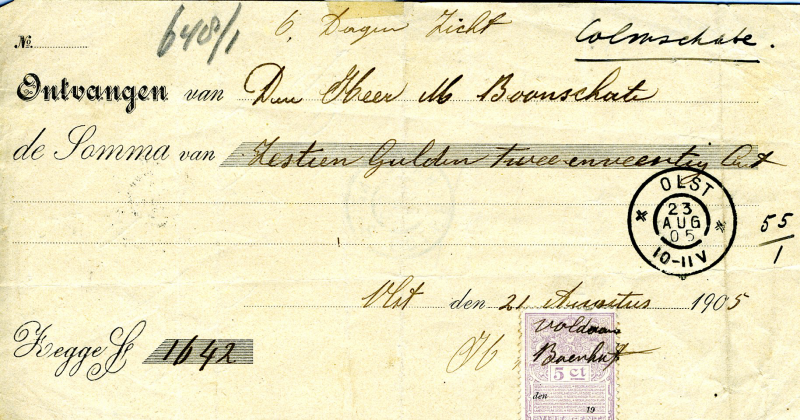 No. 648/1 6, Dagen Zicht Colmschate.
Ontvangen van Den Heer M Boonschate
de Somma van Zestien Gulden twee en veertig Cnt
OLST
23
AUG
05
10-11V
55/1
Olst den 21 Augustus 1905
Zegge ƒ 1642
voldaan
H Boenhof
5 ct
den
19